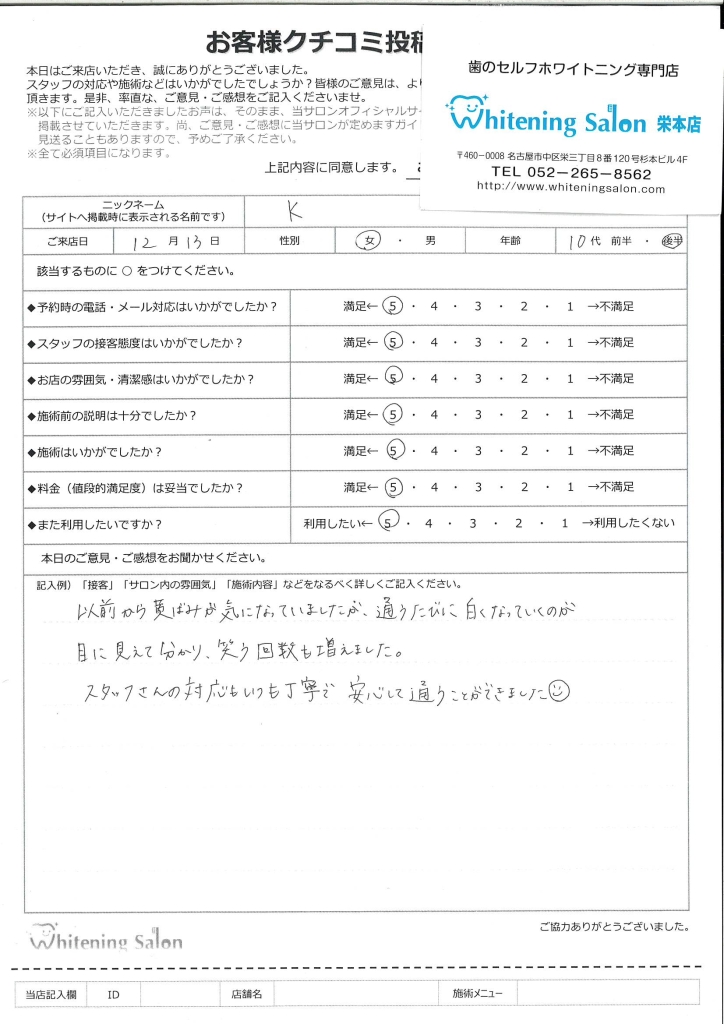 お客様クチコミ投稿
本日はご来店いただき、誠にありがとうございました。
スタッフの対応や施術などはいかがでしたでしょうか？皆様のご意見は、より
頂きます。是非、率直な、ご意見・ご感想をご記入くださいませ。
※以下にご記入いただきましたお声は、そのまま、当サロンオフィシャルサー
掲載させていただきます。尚、ご意見・ご感想に当サロンが定めますガイ
見送ることもありますので、予めご了承ください。
※全て必須項目になります。
上記内容に同意します。
歯のセルフホワイトニング専門店
Whitening Salon 栄本店
〒460-0008 名古屋市中区栄三丁目8番120号杉本ビル4F
TEL 052-265-8562
http://www.whiteningsalon.com
ニックネーム
（サイトへ掲載時に表示される名前です）
K
ご来店日 12 月 13 日 性別 女 ・ 男 年齢 10 代 前半 ・ 後半
該当するものに ○ をつけてください。
◆予約時の電話・メール対応はいかがでしたか？ 満足← 5 ・ 4 ・ 3 ・ 2 ・ 1 →不満足
◆スタッフの接客態度はいかがでしたか？ 満足← 5 ・ 4 ・ 3 ・ 2 ・ 1 →不満足
◆お店の雰囲気・清潔感はいかがでしたか？ 満足← 5 ・ 4 ・ 3 ・ 2 ・ 1 →不満足
◆施術前の説明は十分でしたか？ 満足← 5 ・ 4 ・ 3 ・ 2 ・ 1 →不満足
◆施術はいかがでしたか？ 満足← 5 ・ 4 ・ 3 ・ 2 ・ 1 →不満足
◆料金（値段的満足度）は妥当でしたか？ 満足← 5 ・ 4 ・ 3 ・ 2 ・ 1 →不満足
◆また利用したいですか？ 利用したい← 5 ・ 4 ・ 3 ・ 2 ・ 1 →利用したくない
本日のご意見・ご感想をお聞かせください。
記入例）「接客」「サロン内の雰囲気」「施術内容」などをなるべく詳しくご記入ください。
以前から黄ばみが気になっていましたが、通うたびに白くなっていくのが
目に見えて分かり、笑う回数も増えました。
スタッフさんの対応もいつも丁寧で 安心して通うことができました☺
ご協力ありがとうございました。
Whitening Salon
当店記入欄 ID 店舗名 施術メニュー